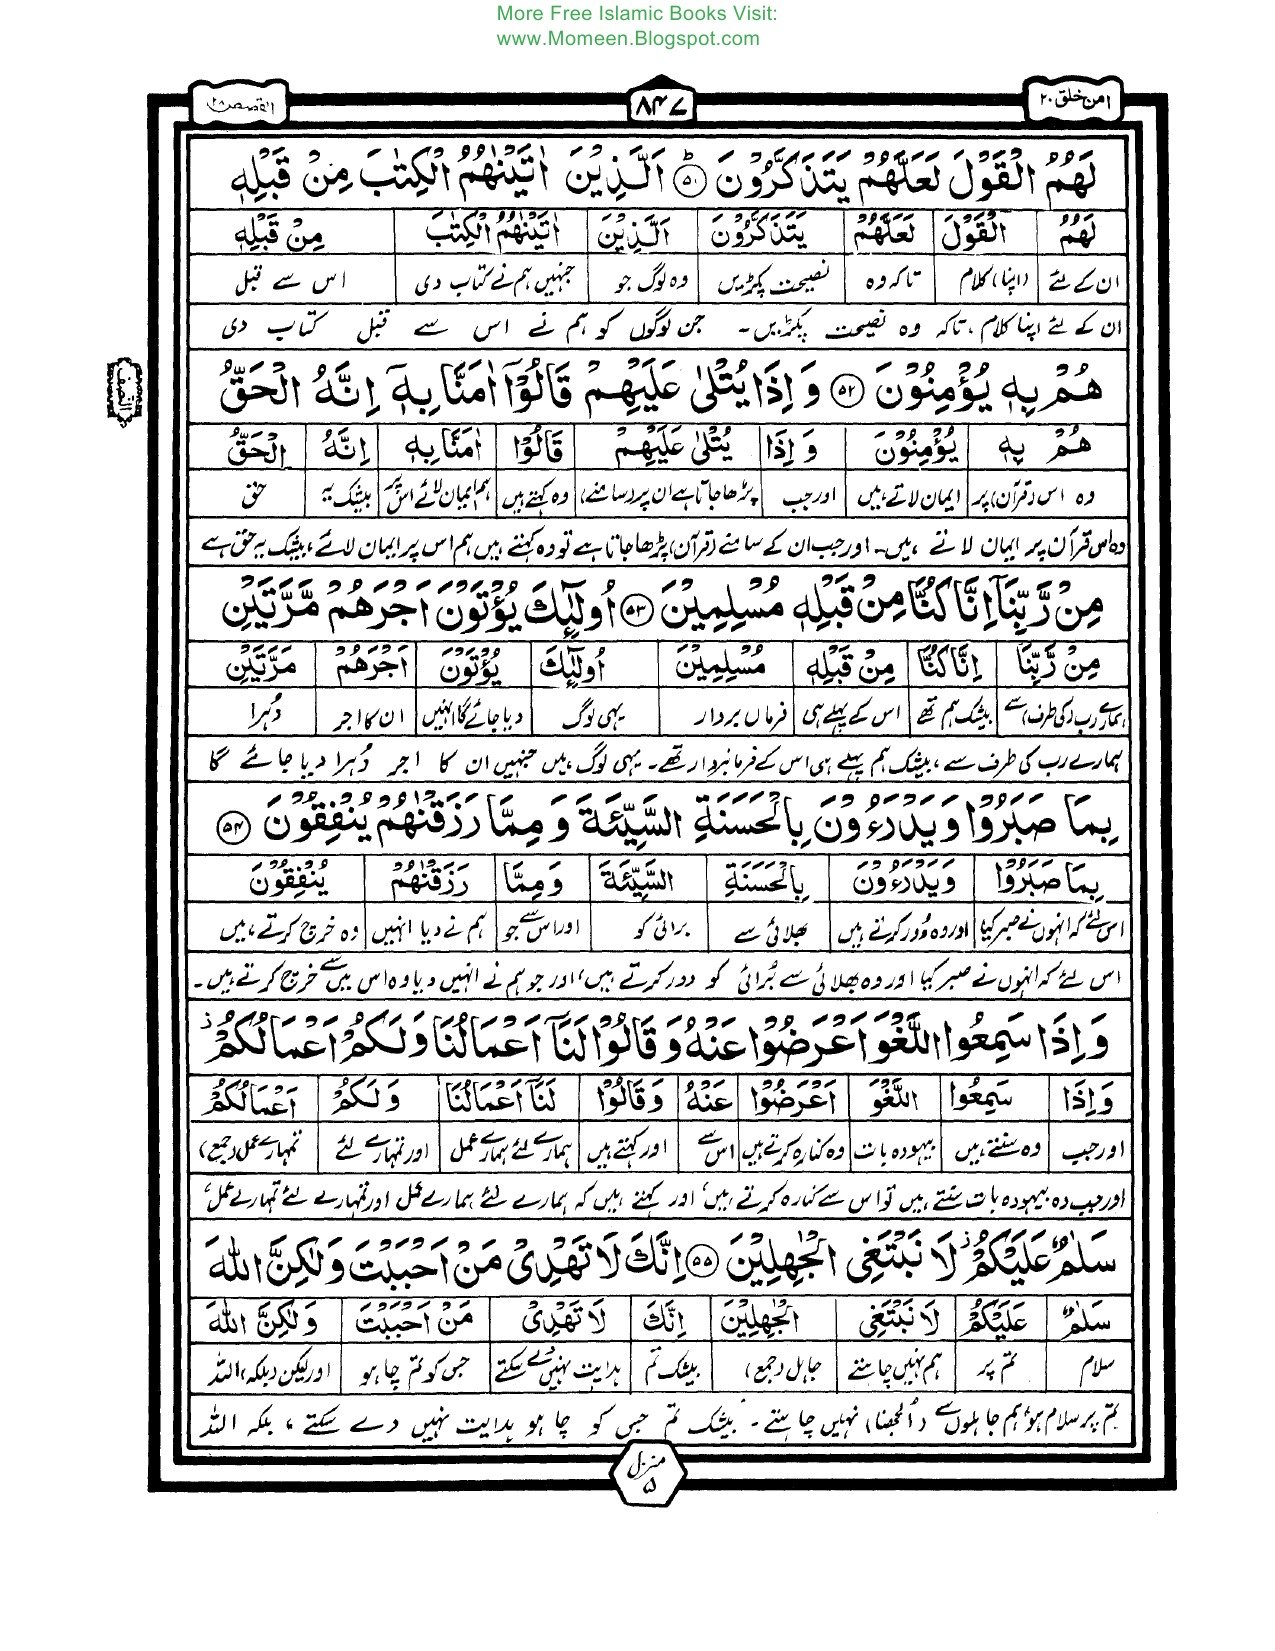 More Free Islamic Books Visit:
www.Momeen.Blogspot.com
امن خلق ۲۰
۸۴۷
القصص ۲۸
لَهُمُ الْقَوْلَ لَعَلَّهُمْ يَتَذَكَّرُوْنَ ۵۱ؕ اَلَّذِيْنَ اٰتَيْنٰهُمُ الْكِتٰبَ مِنْ قَبْلِهٖ
لَهُمُ الْقَوْلَ لَعَلَّهُمْ يَتَذَكَّرُوْنَ اَلَّذِيْنَ اٰتَيْنٰهُمُ الْكِتٰبَ مِنْ قَبْلِهٖ
ان کے لئے (اپنا) کلام تاکہ وہ نصیحت پکڑیں وہ لوگ جو جنہیں ہم نے کتاب دی اس سے قبل
ان کے لئے اپنا کلام، تاکہ وہ نصیحت پکڑیں۔ جن لوگوں کو ہم نے اس سے قبل کتاب دی
النصف
هُمْ بِهٖ يُؤْمِنُوْنَ ۵۲ وَاِذَا يُتْلٰى عَلَيْهِمْ قَالُوْٓا اٰمَنَّا بِهٖٓ اِنَّهُ الْحَقُّ
هُمْ بِهٖ يُؤْمِنُوْنَ وَاِذَا يُتْلٰى عَلَيْهِمْ قَالُوْٓا اٰمَنَّا بِهٖٓ اِنَّهُ الْحَقُّ
وہ اس (قرآن) پر ایمان لاتے ہیں اور جب پڑھا جاتا ہے ان پر (سامنے) وہ کہتے ہیں ہم ایمان لائے اس پر بیشک یہ حق
وہ اس قرآن پر ایمان لاتے ہیں۔ اور جب ان کے سامنے (قرآن) پڑھا جاتا ہے تو وہ کہتے ہیں ہم اس پر ایمان لائے، بیشک یہ حق ہے
مِنْ رَّبِّنَآ اِنَّا كُنَّا مِنْ قَبْلِهٖ مُسْلِمِيْنَ ۵۳ اُولٰٓئِكَ يُؤْتَوْنَ اَجْرَهُمْ مَّرَّتَيْنِ
مِنْ رَّبِّنَآ اِنَّا كُنَّا مِنْ قَبْلِهٖ مُسْلِمِيْنَ اُولٰٓئِكَ يُؤْتَوْنَ اَجْرَهُمْ مَّرَّتَيْنِ
ہمارے رب (کی طرف) سے بیشک ہم تھے اس کے پہلے ہی فرماں بردار یہی لوگ دیا جائے گا انہیں ان کا اجر دُہرا
ہمارے رب کی طرف سے، بیشک ہم پہلے ہی اس کے فرمانبردار تھے۔ یہی لوگ ہیں جنہیں ان کا اجر دُہرا دیا جائے گا
بِمَا صَبَرُوْا وَيَدْرَءُوْنَ بِالْحَسَنَةِ السَّيِّئَةَ وَمِمَّا رَزَقْنٰهُمْ يُنْفِقُوْنَ ۵۴
بِمَا صَبَرُوْا وَيَدْرَءُوْنَ بِالْحَسَنَةِ السَّيِّئَةَ وَمِمَّا رَزَقْنٰهُمْ يُنْفِقُوْنَ
اس لئے کہ انہوں نے صبر کیا اور وہ دور کرتے ہیں بھلائی سے برائی کو اور اس سے جو ہم نے دیا انہیں وہ خرچ کرتے ہیں
اس لئے کہ انہوں نے صبر کیا اور وہ بھلائی سے بُرائی کو دور کرتے ہیں، اور جو ہم نے انہیں دیا وہ اس میں سے خرچ کرتے ہیں۔
وَاِذَا سَمِعُوا اللَّغْوَ اَعْرَضُوْا عَنْهُ وَقَالُوْا لَنَآ اَعْمَالُنَا وَلَكُمْ اَعْمَالُكُمْ ز
وَاِذَا سَمِعُوا اللَّغْوَ اَعْرَضُوْا عَنْهُ وَقَالُوْا لَنَآ اَعْمَالُنَا وَلَكُمْ اَعْمَالُكُمْ
اور جب وہ سنتے ہیں بیہودہ بات وہ کنارہ کرتے ہیں اس سے اور کہتے ہیں ہمارے لئے ہمارے عمل اور تمہارے لئے تمہارے عمل (جمع)
اور جب وہ بیہودہ بات سنتے ہیں تو اس سے کنارہ کرتے ہیں، اور کہتے ہیں کہ ہمارے لئے ہمارے عمل اور تمہارے لئے تمہارے عمل،
سَلٰمٌ عَلَيْكُمْ ز لَا نَبْتَغِى الْجٰهِلِيْنَ ۵۵ اِنَّكَ لَا تَهْدِىْ مَنْ اَحْبَبْتَ وَلٰكِنَّ اللّٰهَ
سَلٰمٌ عَلَيْكُمْ لَا نَبْتَغِى الْجٰهِلِيْنَ اِنَّكَ لَا تَهْدِىْ مَنْ اَحْبَبْتَ وَلٰكِنَّ اللّٰهَ
سلام تم پر ہم نہیں چاہتے جاہل (جمع) بیشک تم ہدایت نہیں دے سکتے جس کو تم چاہو اور لیکن (بلکہ) اللہ
تم پر سلام ہو، ہم جاہلوں سے (اُلجھنا) نہیں چاہتے۔ بیشک تم جس کو چاہو ہدایت نہیں دے سکتے، بلکہ اللہ
منزل ۵